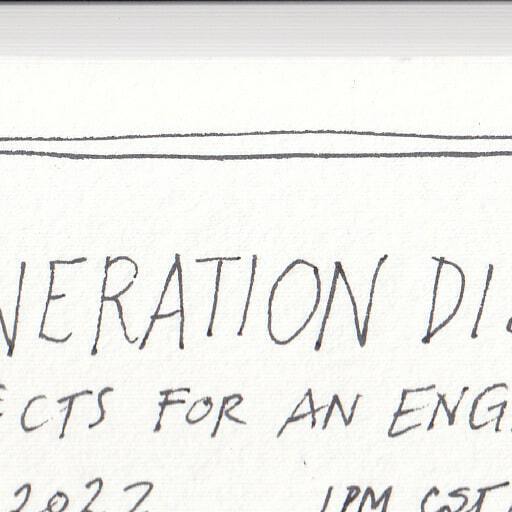 NERATION DI
ECTS FOR AN ENG
2022 1PM CST